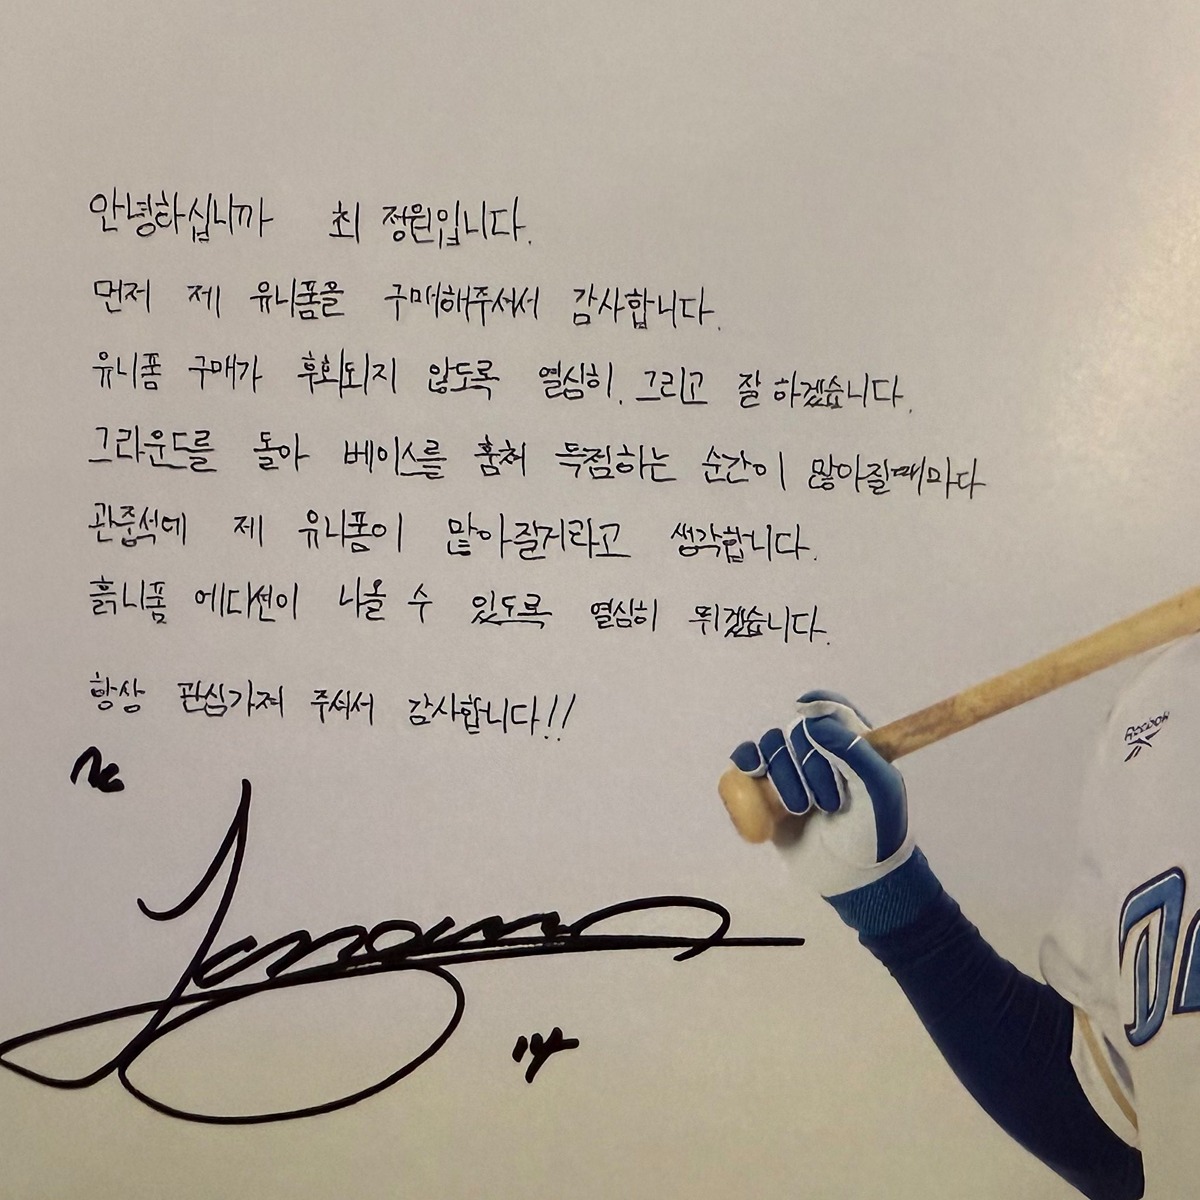 안녕하십니까 최 정원입니다.
먼저 제 유니폼을 구매해주셔서 감사합니다.
유니폼 구매가 후회되지 않도록 열심히. 그리고 잘 하겠습니다.
그라운드를 돌아 베이스를 훔쳐 득점하는 순간이 많아질때마다
관중석에 제 유니폼이 많아질거라고 생각합니다.
흙니폼 에디션이 나올 수 있도록 열심히 뛰겠습니다.
항상 관심가져 주셔서 감사합니다!!
NC
14
Reebok